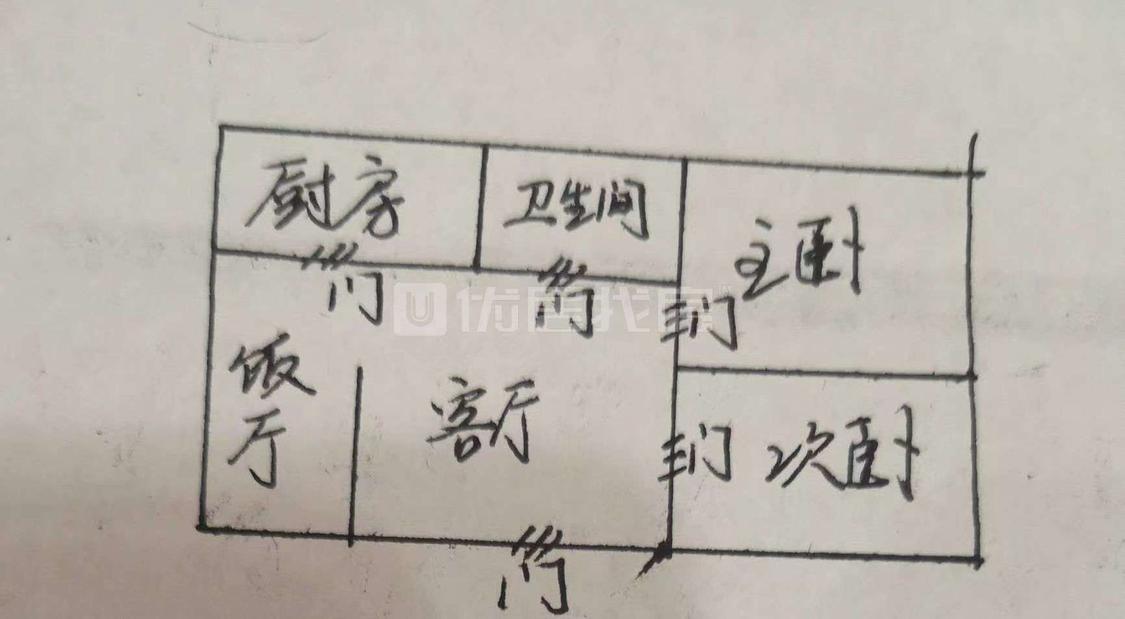 厨房
卫生间
主卧
门
门
门
优居找房
饭厅
客厅
门
次卧
门